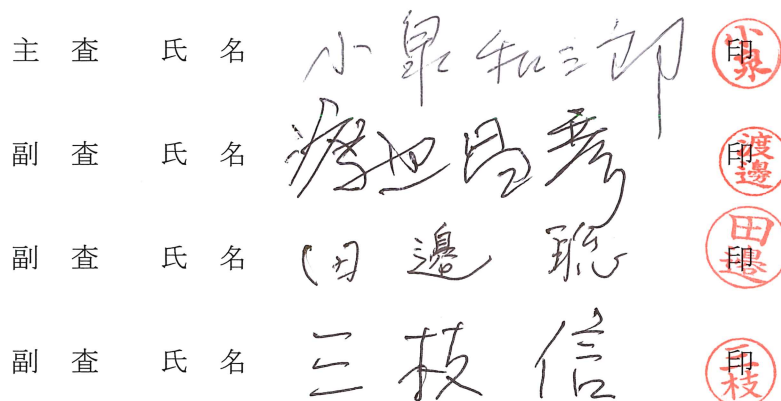 主査 氏名 小泉和三郎 印 小泉
副査 氏名 渡辺昌彦 印 渡邊
副査 氏名 田邊聡 印 田邉
副査 氏名 三枝信 印 三枝